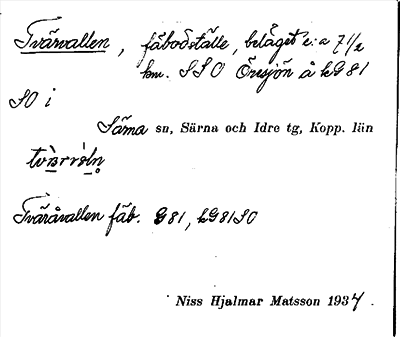 Tvärvallen, fäbodställe, beläget c:a 7 1/2
km. SSO Öresjön å kG81
SO i
Särna sn, Särna och Idre tg, Kopp. län
Tväråvallen fäb. G81, kG81SO
Niss Hjalmar Matsson 1937.